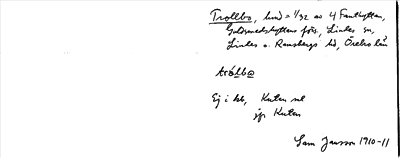 Trollbo, lund = 1/32 av 4 Fanthyttan,
Guldsmedshyttans förs, Lindes sn,
Lindes o. Ramsbergs hd, Örebro län
Ej i kb, Kuten ml
jfr Kuten
Sam Jansson 1910-11